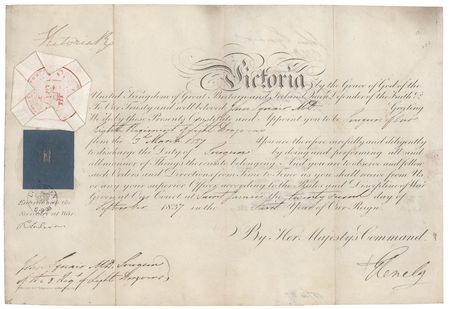 Victoria R
Victoria by the Grace of God of the
United Kingdom of Great Britain and Ireland, Queen, Defender of the Faith &c.
To Our Trusty and well beloved MD Greeting
We do by these Presents Constitute and Appoint you to be Surgeon of Our
Eighth Regiment of Light Dragoons
from the 3 March 1837 You are therefore carefully and diligently
to discharge the Duty of Surgeon by doing and performing all and
all manner of Things thereunto belonging And you are to observe and follow
such Orders and Directions from Time to Time as you shall receive from Us
or any your superior Officer according to the Rules and Discipline of War
Given at Our Court at Saint James's the twenty second day of
1837 in the First Year of Our Reign
By Her Majesty's Command
Entered with the
Secretary at War
John MD Surgeon
of the 8 Regt of Light Dragoons